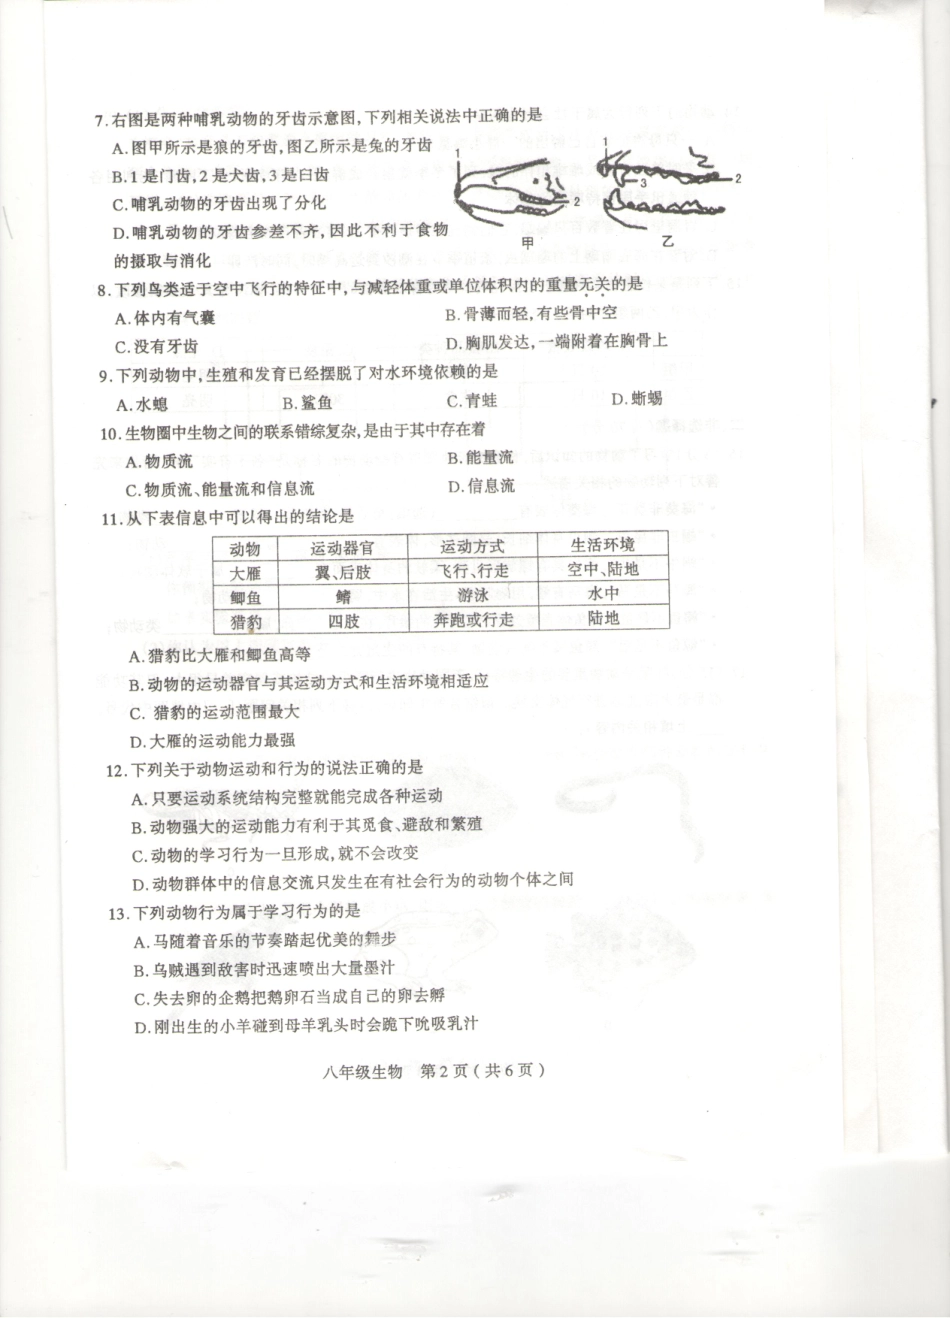 7.右图是两种哺乳动物的牙齿示意图,下列相关说法中正确的是
A.图甲所示是狼的牙齿,图乙所示是兔的牙齿
B.1是门齿,2是犬齿,3是臼齿
C.哺乳动物的牙齿出现了分化
D.哺乳动物的牙齿参差不齐,因此不利于食物
的摄取与消化
1
2
甲
1
2
3
乙
8.下列鸟类适于空中飞行的特征中,与减轻体重或单位体积内的重量无关的是
A.体内有气囊 B.骨薄而轻,有些骨中空
C.没有牙齿 D.胸肌发达,一端附着在胸骨上
9.下列动物中,生殖和发育已经摆脱了对水环境依赖的是
A.水螅 B.鲨鱼 C.青蛙 D.蜥蜴
10.生物圈中生物之间的联系错综复杂,是由于其中存在着
A.物质流 B.能量流
C.物质流、能量流和信息流 D.信息流
11.从下表信息中可以得出的结论是
动物 运动器官 运动方式 生活环境
大雁 翼、后肢 飞行、行走 空中、陆地
鲫鱼 鳍 游泳 水中
猎豹 四肢 奔跑或行走 陆地
A.猎豹比大雁和鲫鱼高等
B.动物的运动器官与其运动方式和生活环境相适应
C. 猎豹的运动范围最大
D.大雁的运动能力最强
12.下列关于动物运动和行为的说法正确的是
A.只要运动系统结构完整就能完成各种运动
B.动物强大的运动能力有利于其觅食、避敌和繁殖
C.动物的学习行为一旦形成,就不会改变
D.动物群体中的信息交流只发生在有社会行为的动物个体之间
13.下列动物行为属于学习行为的是
A.马随着音乐的节奏踏起优美的舞步
B.乌贼遇到敌害时迅速喷出大量墨汁
C.失去卵的企鹅把鹅卵石当成自己的卵去孵
D.刚出生的小羊碰到母羊乳头时会跪下吮吸乳汁
八年级生物 第2页(共6页)